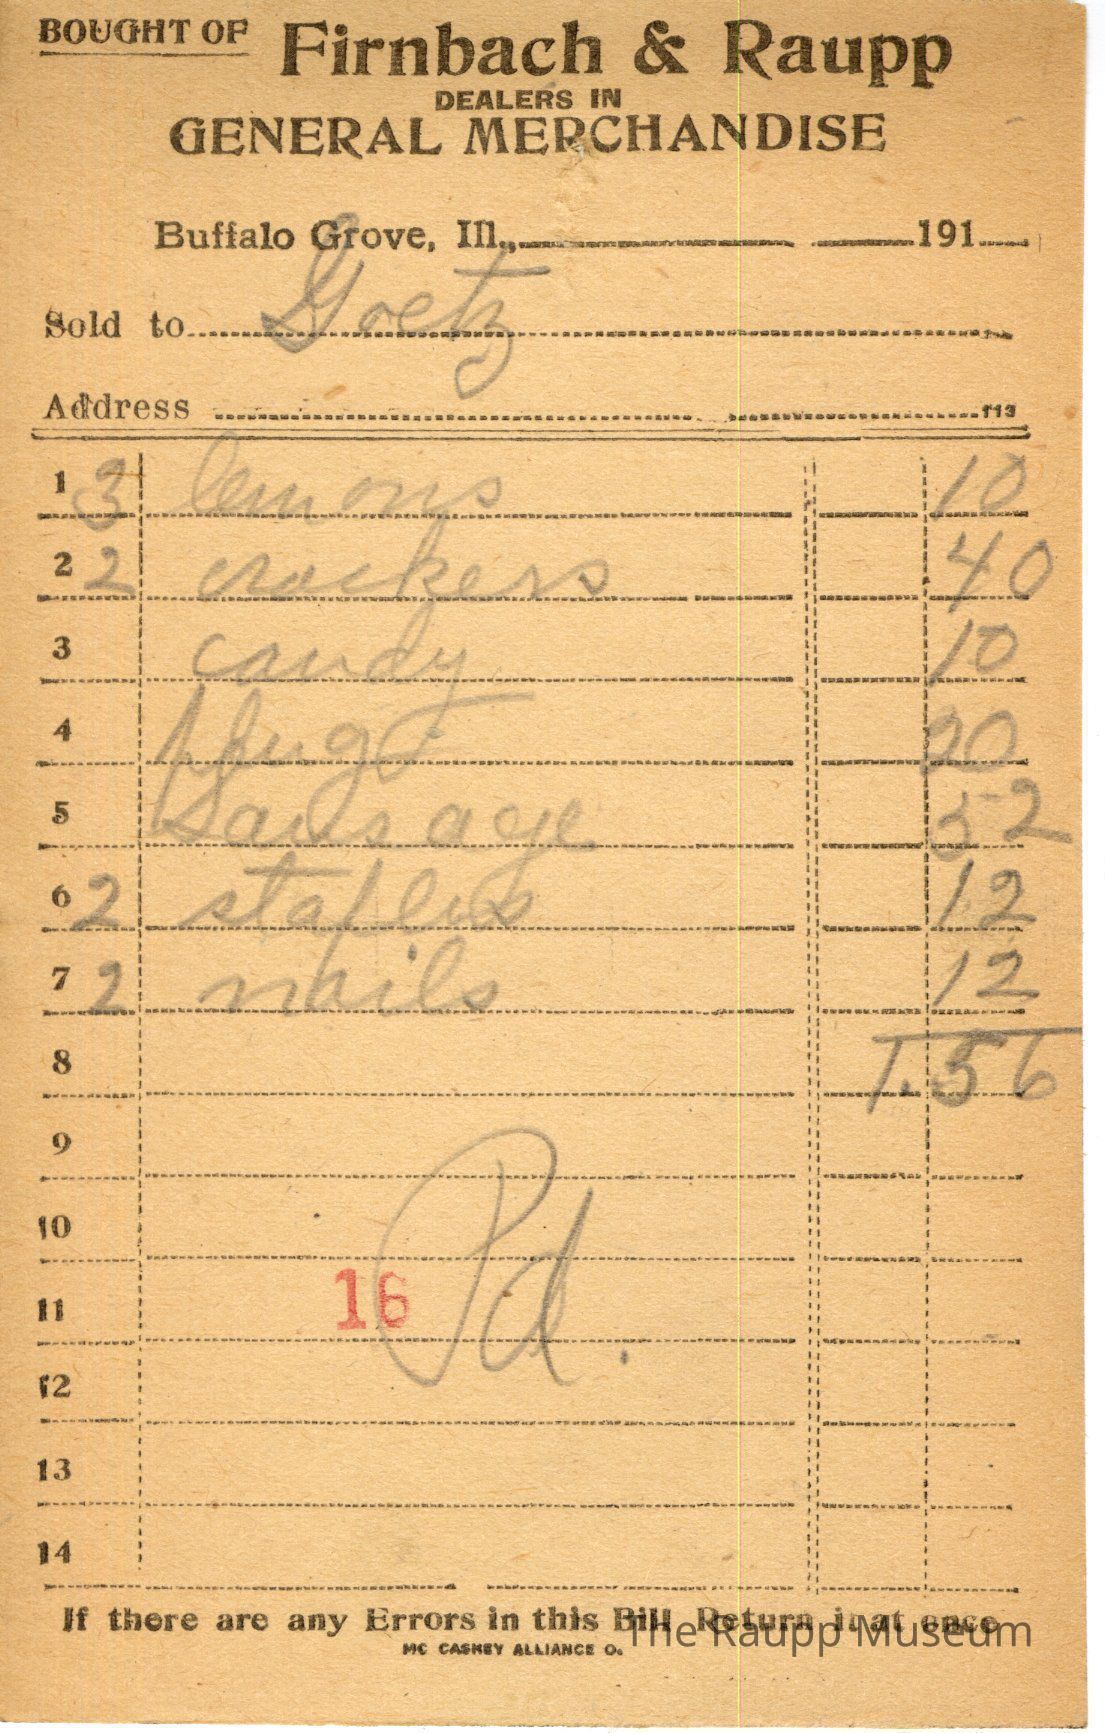 BOUGHT OF Firnbach & Raupp
DEALERS IN
GENERAL MERCHANDISE
Buffalo Grove, Ill., 191
Sold to Goetz
Address 113
1 3 lemons 10
2 2 crackers 40
3 candy 10
4 plug 20
5 Sausage 52
6 2 staples 12
7 2 nails 12
8 1.56
9
10
11 16 Pd.
12
13
14
If there are any Errors in this Bill Return it at once
MC CASKEY ALLIANCE O.
The Raupp Museum